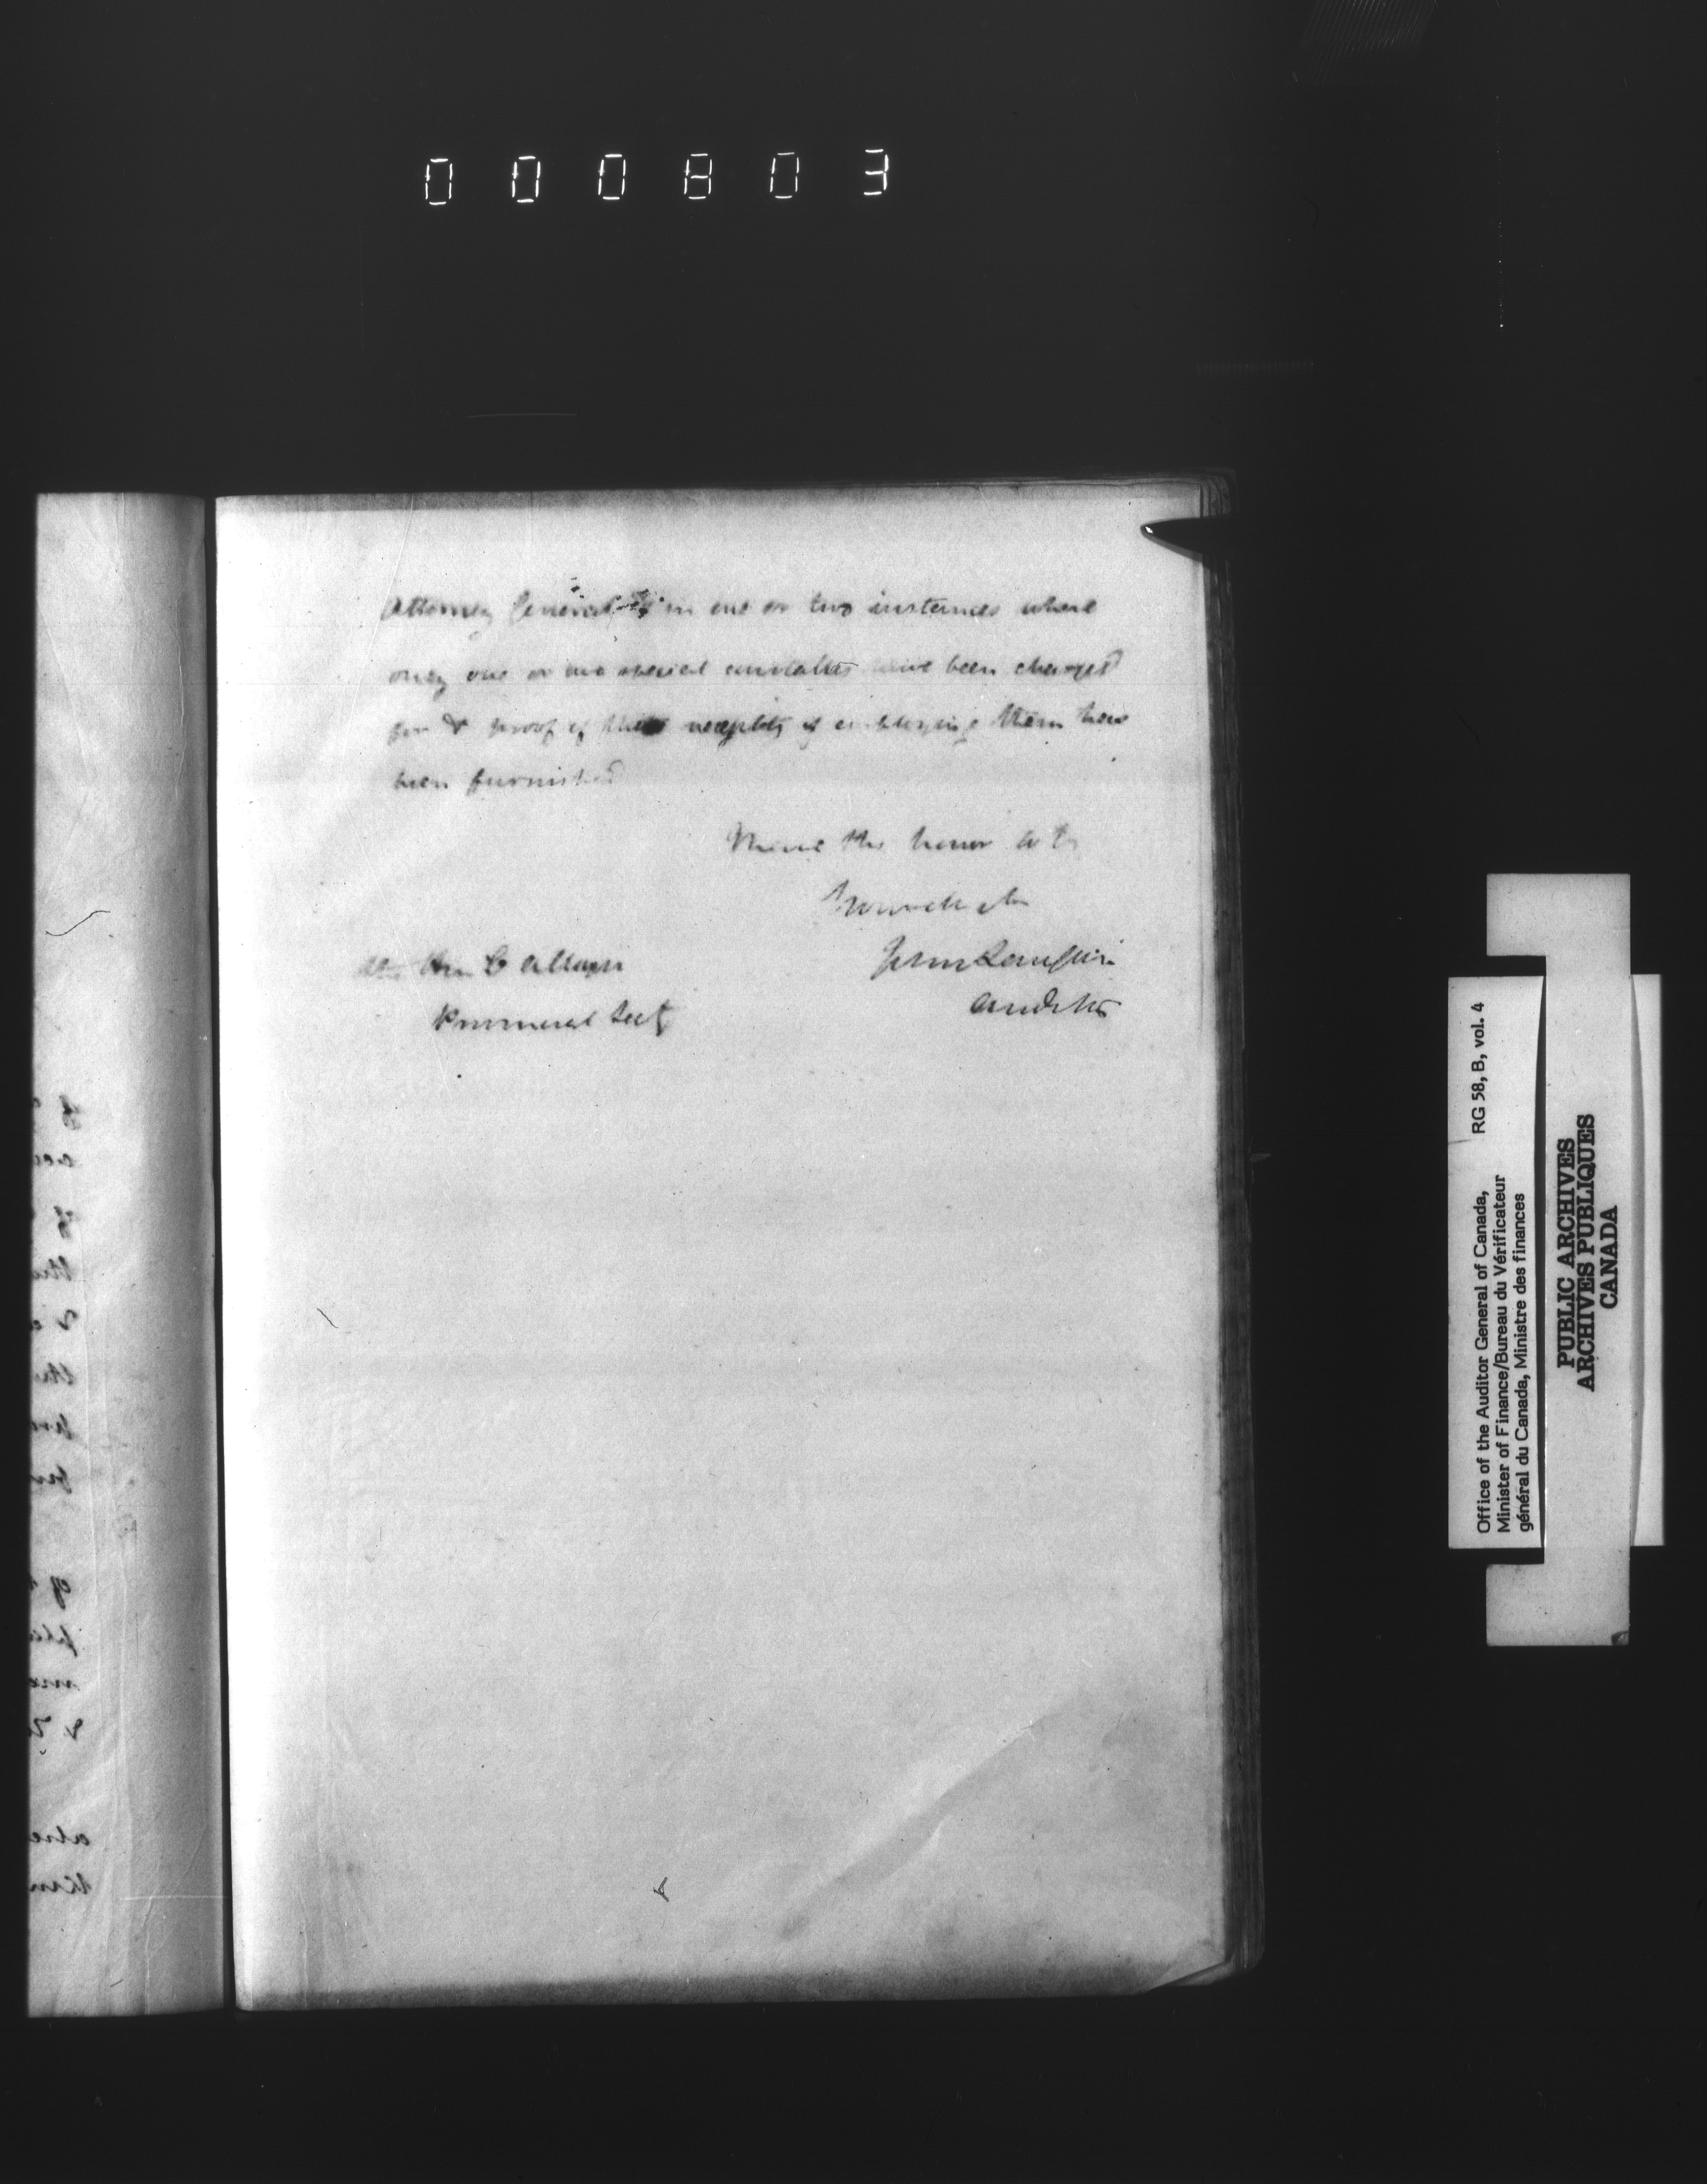 000803
Attorney General in one or two instances where
only one or two special constables have been charged
for & proof of the necessity of employing them have
been furnished
I have the honor to be
John Langton
Auditor
The Hon C Alleyn
Provincial Secy
Office of the Auditor General of Canada, RG 58, B, vol. 4
Minister of Finance/Bureau du Vérificateur
général du Canada, Ministre des finances
PUBLIC ARCHIVES
ARCHIVES PUBLIQUES
CANADA